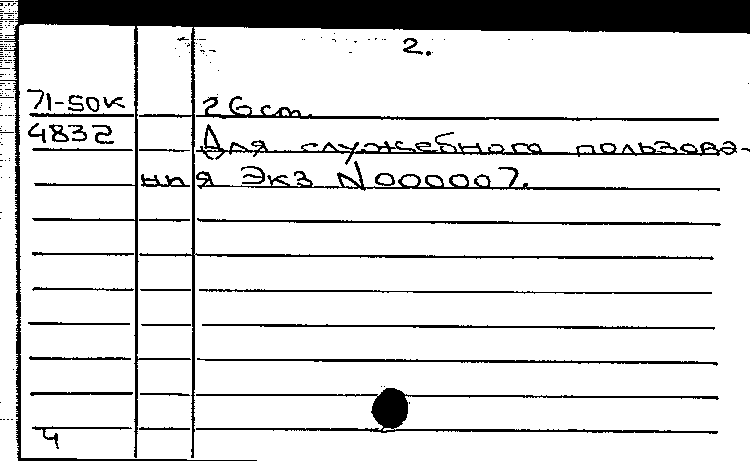 2.
71-50к 26 cm.
4832 Для служебного пользова-
ния Экз N000007.
4